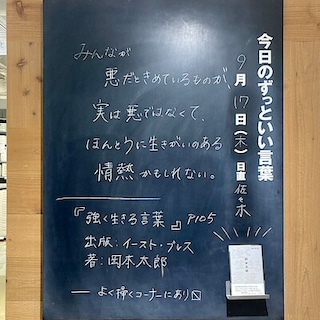 今日のずっといい言葉
9月17日(木) 日直 佐々木
みんなが
悪だときめているものが、
実は悪ではなくて、
ほんとうに生きがいのある
情熱かもしれない。
『強く生きる言葉』P105
出版：イースト・プレス
著：岡本太郎
── よく掃くコーナーにあり〼